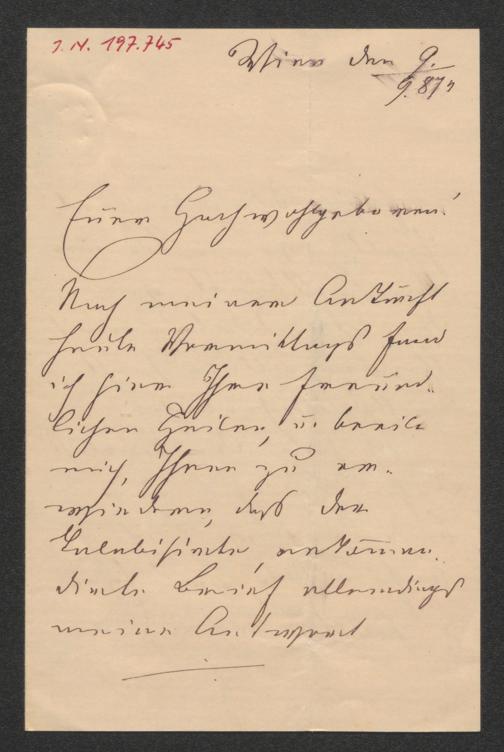 I. N. 197.745
Wien den 9./9. 87
Euer Hochwohlgeboren!
Nach meiner Ankunft
heute Vormittags fand
ich hier Ihre freund-
lichen Zeilen, u. beeile
mich, Ihnen zu er-
wiedern, daß der
rekomman-
dirte Brief allerdings
meine Antwort